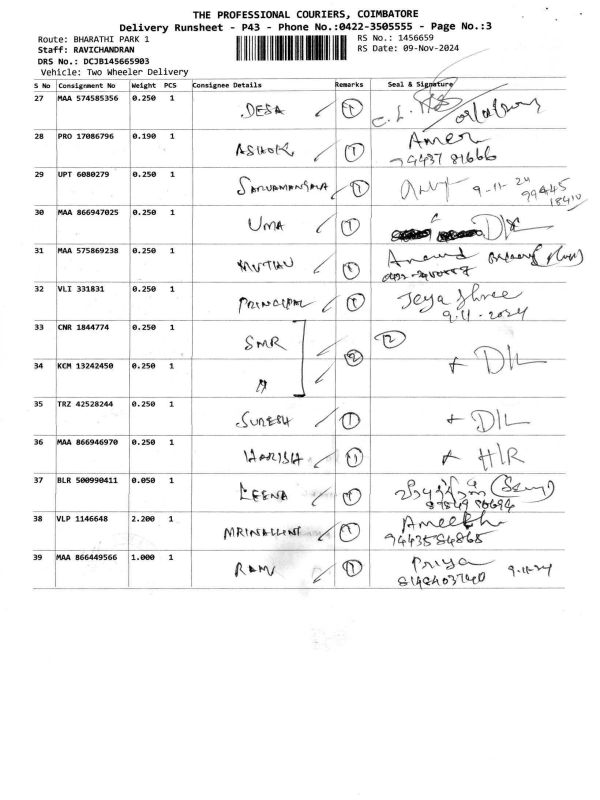 THE PROFESSIONAL COURIERS, COIMBATORE
Delivery Runsheet - P43 - Phone No.:0422-3505555 - Page No.:3
Route: BHARATHI PARK 1
RS No.: 1456659
Staff: RAVICHANDRAN
RS Date: 09-Nov-2024
DRS No.: DCJB145665903
Vehicle: Two Wheeler Delivery
S No Consignment No Weight PCS Consignee Details Remarks Seal & Signature
27 MAA 574585356 0.250 1 DESA 1
28 PRO 17086796 0.190 1 ASHOK 1 Amer
94437 81666
29 UPT 6080279 0.250 1 SARVAMANGALA 1 9-11-24
99445
18410
30 MAA 866947025 0.250 1 UMA 1 D/L
31 MAA 575869238 0.250 1 1 Anand
32 VLI 331831 0.250 1 PRINCIPAL 1 Jeya shree
9.11.2024
33 CNR 1844774 0.250 1 SMR 2 2
34 KCM 13242450 0.250 1 " + D/L
35 TRZ 42528244 0.250 1 SURESH 1 + D/L
36 MAA 866946970 0.250 1 HARISH 1 + H/R
37 BLR 500990411 0.050 1 LEENA 1
38 VLP 1146648 2.200 1 MRINALLINI 1
9443584865
39 MAA 866449566 1.000 1 RAMU 1 Priya 9-11-24
8148403740